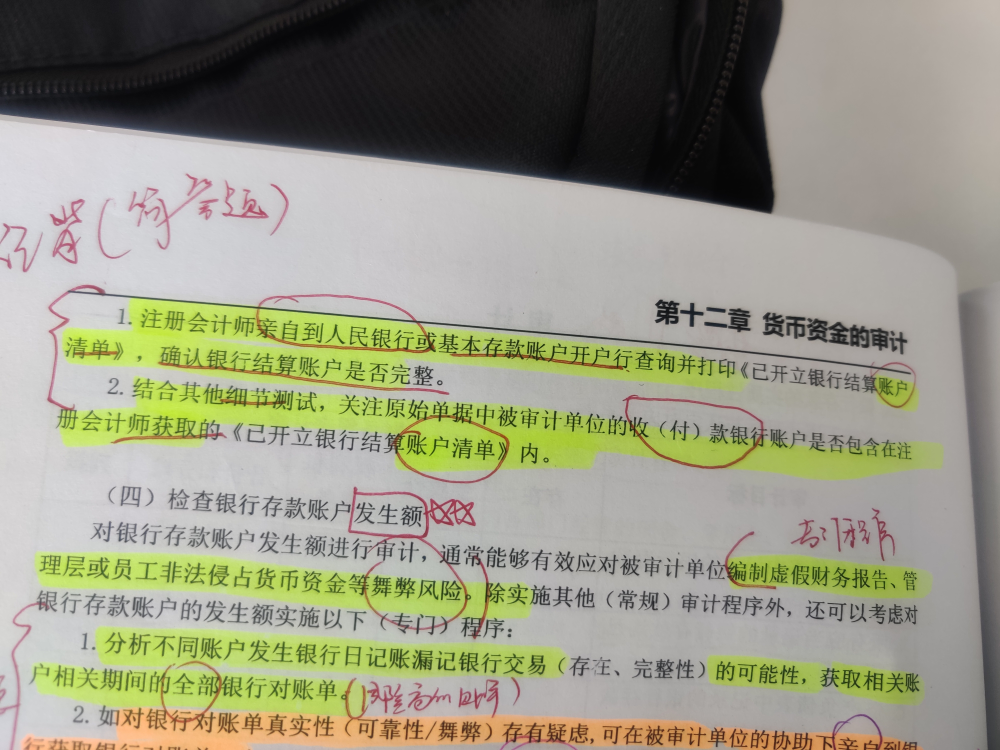 背（简答题）
第十二章 货币资金的审计
1. 注册会计师亲自到人民银行或基本存款账户开户行查询并打印《已开立银行结算账户
清单》，确认银行结算账户是否完整。
2. 结合其他细节测试，关注原始单据中被审计单位的收（付）款银行账户是否包含在注
册会计师获取的《已开立银行结算账户清单》内。
（四）检查银行存款账户发生额
对银行存款账户发生额进行审计，通常能够有效应对被审计单位编制虚假财务报告、管
理层或员工非法侵占货币资金等舞弊风险。除实施其他（常规）审计程序外，还可以考虑对
银行存款账户的发生额实施以下（专门）程序：
1. 分析不同账户发生银行日记账漏记银行交易（存在、完整性）的可能性，获取相关账
户相关期间的全部银行对账单。
2. 如对银行对账单真实性（可靠性/舞弊）存有疑虑，可在被审计单位的协助下亲自到银